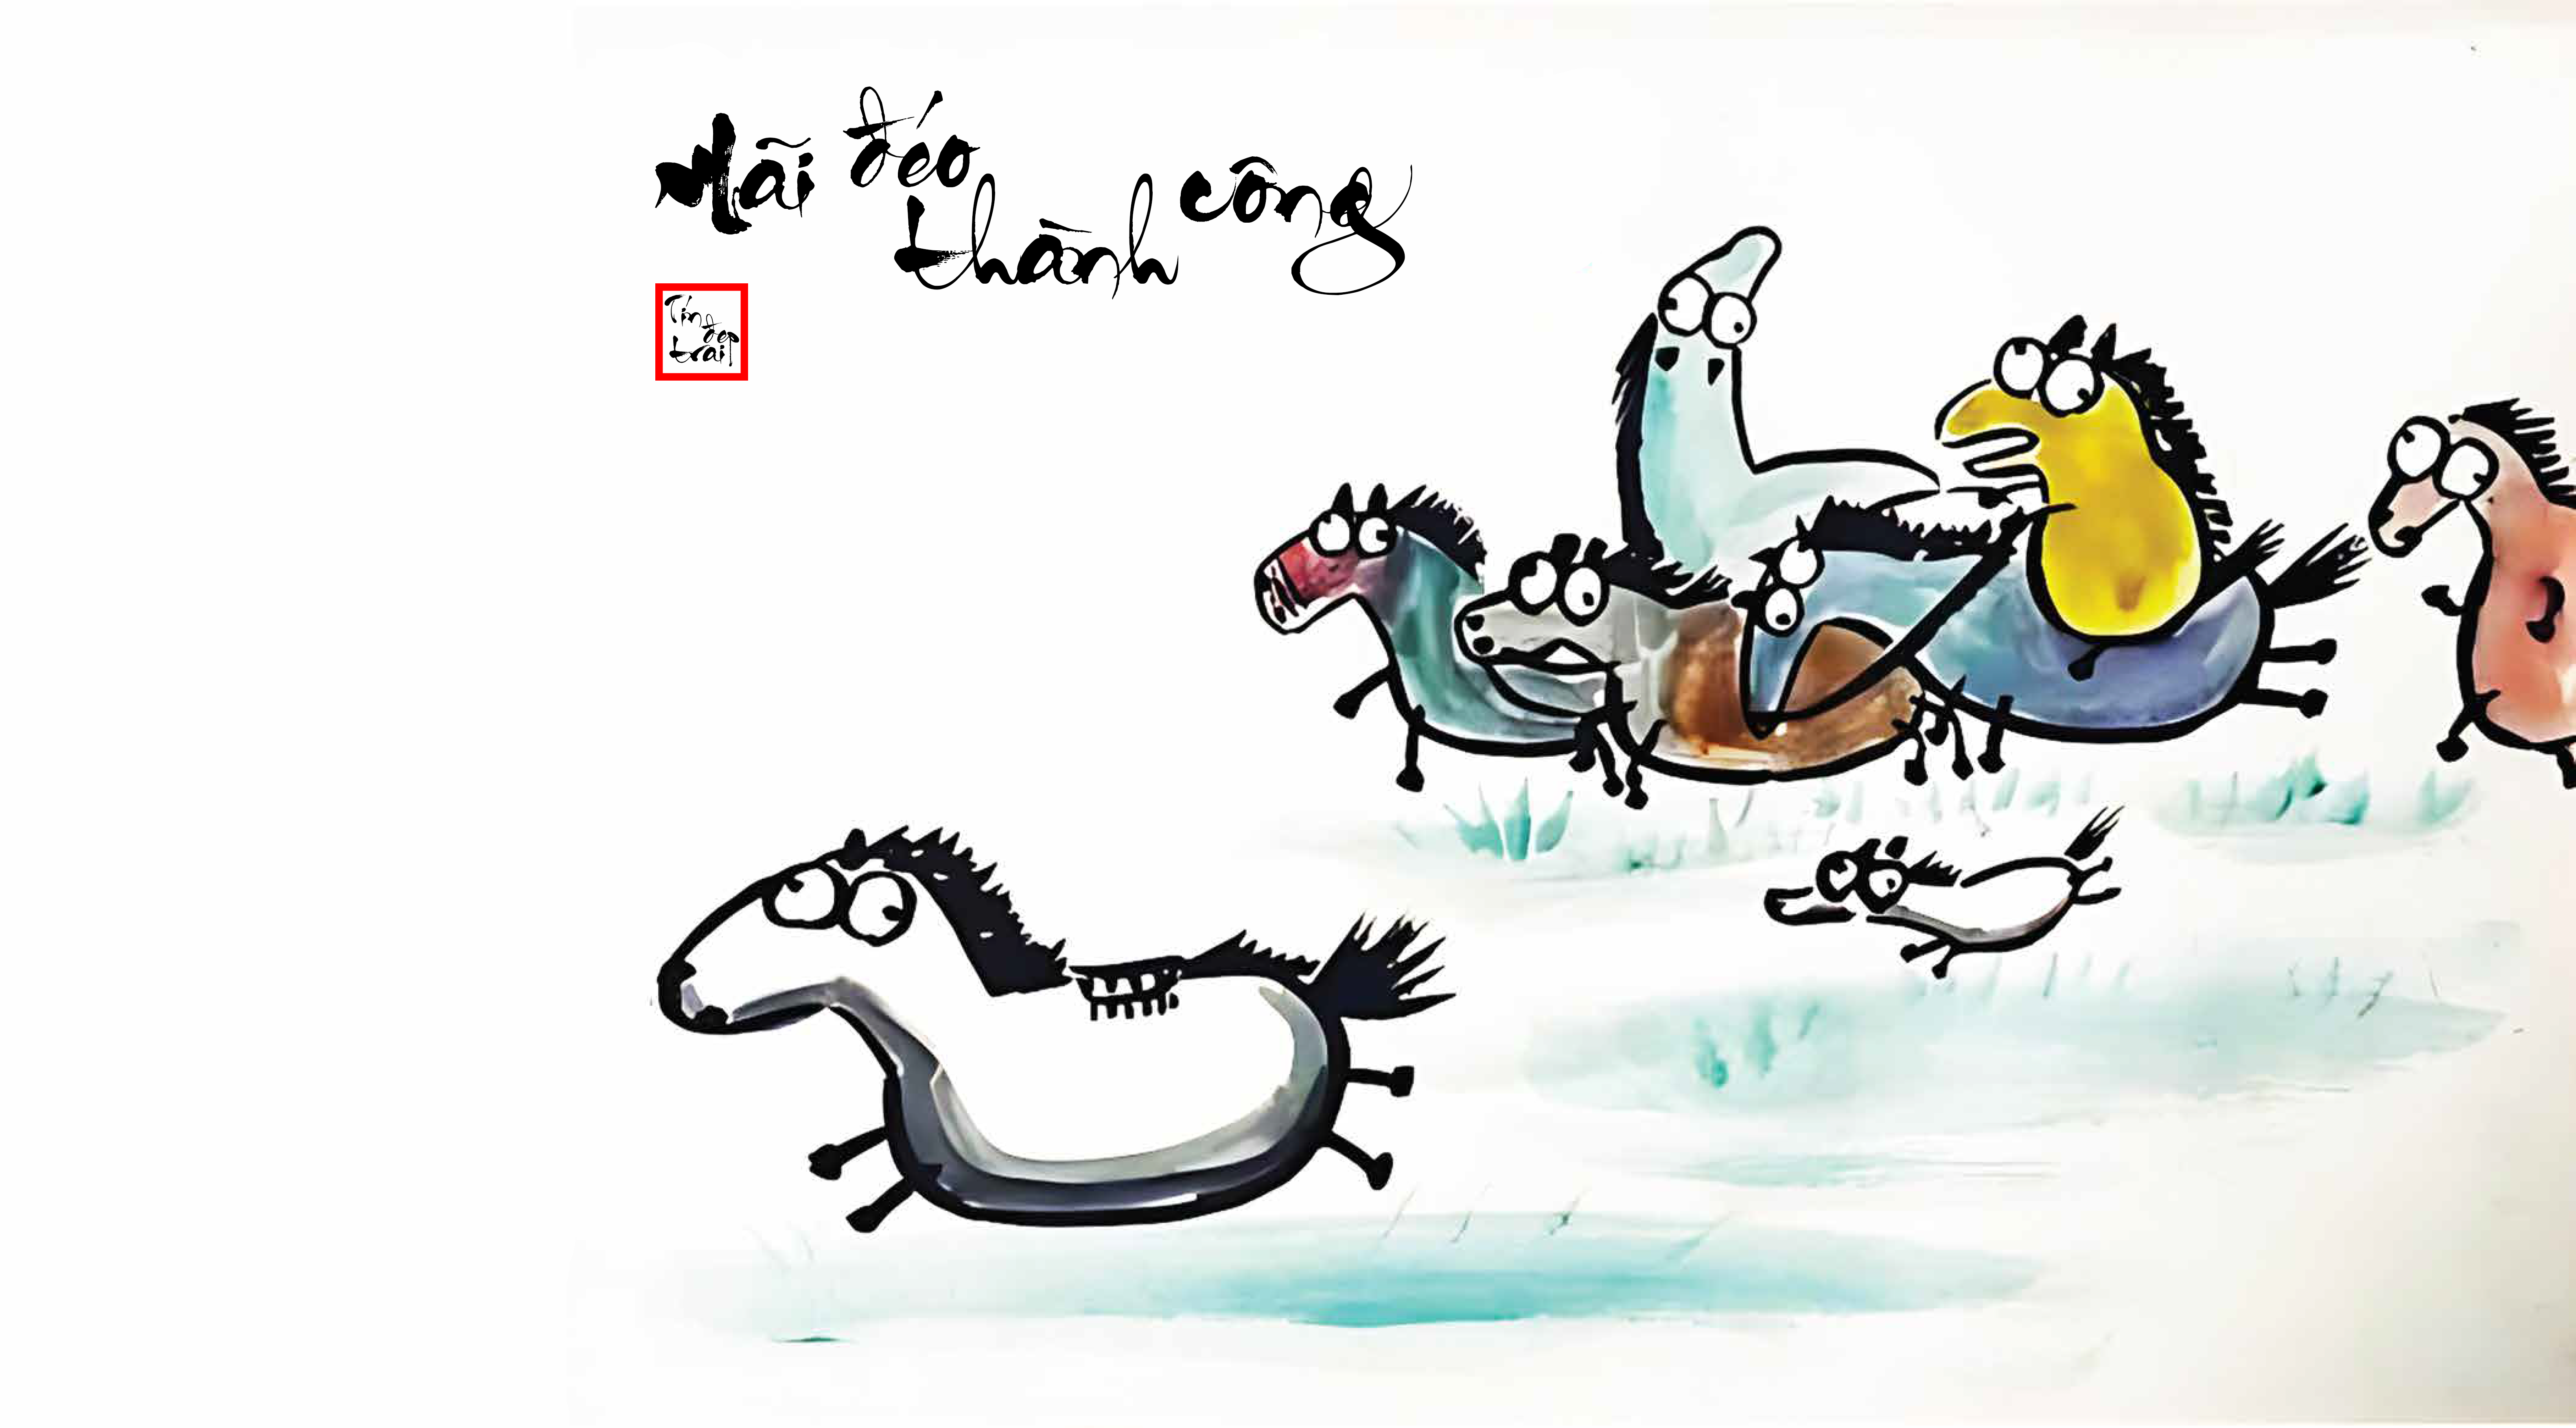 Mãi đéo
thành công
Tín
đẹp
trai